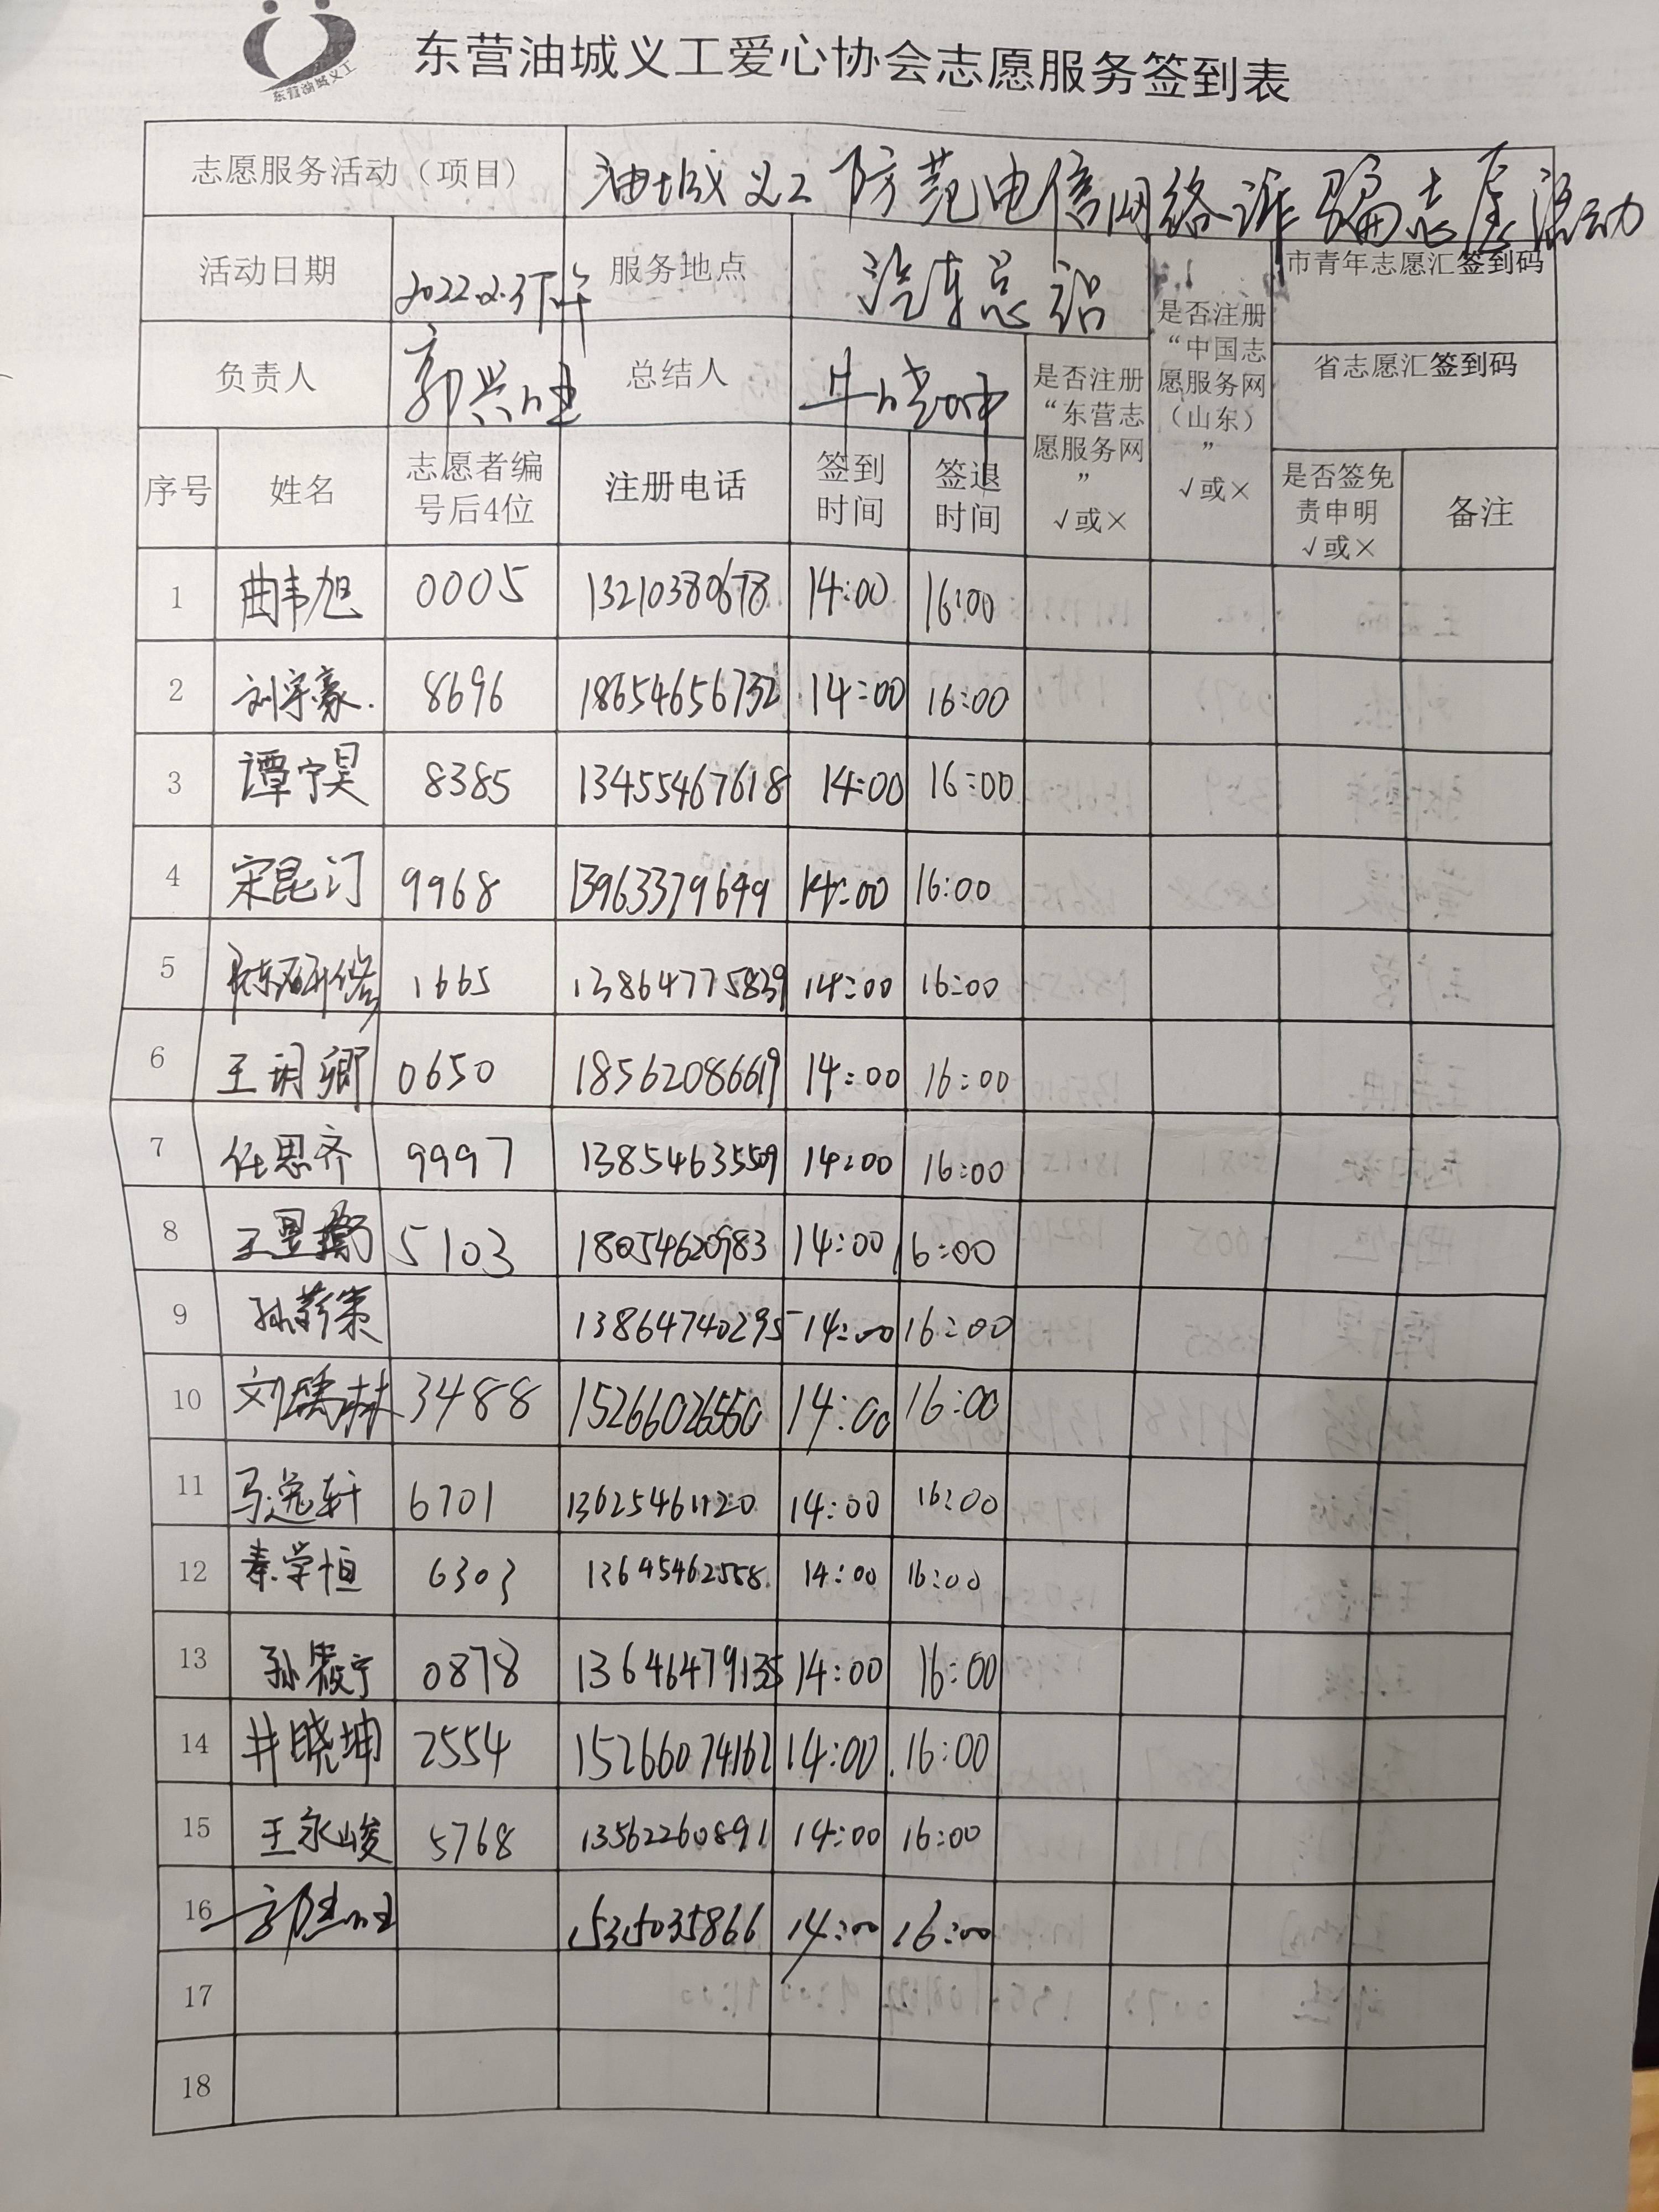 东营油城义工
东营油城义工爱心协会志愿服务签到表
志愿服务活动（项目） 油城义工防范电信网络诈骗志愿活动
活动日期 2022.2.3下午 服务地点 汽车总站 市青年志愿汇签到码
负责人 郭兴旺 总结人 井晓坤 是否注册“东营志愿服务网” √或× 是否注册“中国志愿服务网（山东）” √或× 省志愿汇签到码
序号 姓名 志愿者编号后4位 注册电话 签到时间 签退时间 是否签免责申明 √或× 备注
1 曲韦旭 0005 13210380678 14:00 16:00
2 刘宇豪. 8696 18654656732 14:00 16:00
3 谭宁昊 8385 13455467618 14:00 16:00
4 宋昆 9968 13963379649 14:00 16:00
5 1665 13864775839 14:00 16:00
6 王玥卿 0650 18562086619 14:00 16:00
7 任思齐 9997 13854635509 14:00 16:00
8 王昱 5103 18054620983 14:00 16:00
9 孙蓊策 13864740295 14:00 16:00
10 刘瑀林 3488 15266026560 14:00 16:00
11 马逸轩 6701 13625461120 14:00 16:00
12 秦学恒 6303 13645462558 14:00 16:00
13 孙宁 0878 13646479135 14:00 16:00
14 井晓坤 2554 15266074162 14:00 16:00
15 王永峻 5768 13562260891 14:00 16:00
16 郭兴旺 15315035866 14:00 16:00
17
18